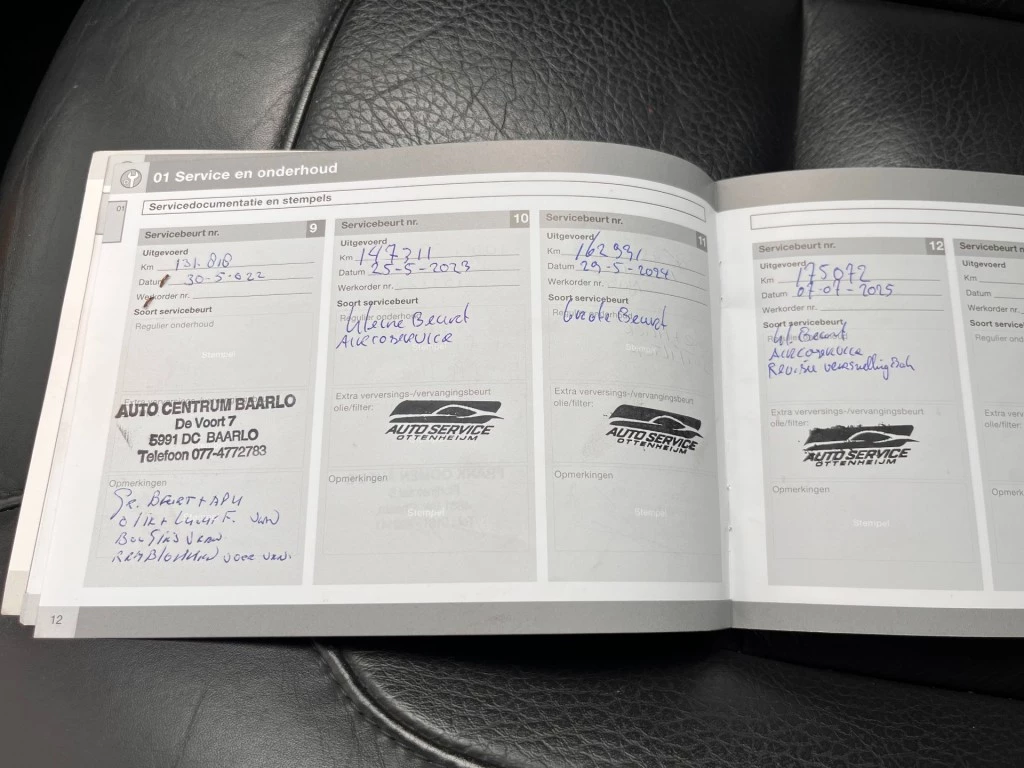 01 Service en onderhoud
01
Servicedocumentatie en stempels
Servicebeurt nr. 9
Uitgevoerd
Km 131.818
Datum 30-5-022
Werkorder nr.
Soort servicebeurt
Regulier onderhoud
Stempel
AUTO CENTRUM BAARLO
De Voort 7
5991 DC BAARLO
Telefoon 077-4772783
Opmerkingen
Gr. Beurt + APK
Olie + Lucht F. van
Bougies van
Remblokken voor van.
Servicebeurt nr. 10
Uitgevoerd
Km 147311
Datum 25-5-2023
Werkorder nr.
Soort servicebeurt
Regulier onderhoud
Kleine Beurt
Aircoservice
Extra verversings-/vervangingsbeurt
olie/filter:
AUTO SERVICE
OTTENHEIJM
Opmerkingen
Stempel
Servicebeurt nr. 11
Uitgevoerd
Km 162931
Datum 29-5-2024
Werkorder nr.
Soort servicebeurt
Grote Beurt
Extra verversings-/vervangingsbeurt
olie/filter:
AUTO SERVICE
OTTENHEIJM
Opmerkingen
Stempel
12
Servicebeurt nr. 12
Uitgevoerd
Km 175072
Datum 07-07-2025
Werkorder nr.
Soort servicebeurt
Kl. Beurt
Aircoservice
Revisie versnellingsbak
Extra verversings-/vervangingsbeurt
olie/filter:
AUTO SERVICE
OTTENHEIJM
Opmerkingen
Stempel
Servicebeurt n
Uitgevoerd
Km
Datum
Werkorder nr.
Soort service
Regulier onder
Extra ververs
olie/filter:
Opmerkinge